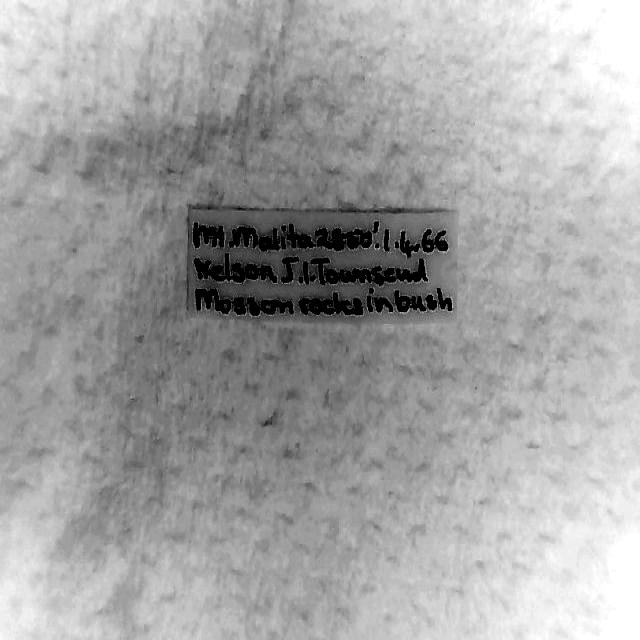 Mt. Malita 2800'. 1.4.66
Nelson J.I.Townsend
Moss on rocks in bush